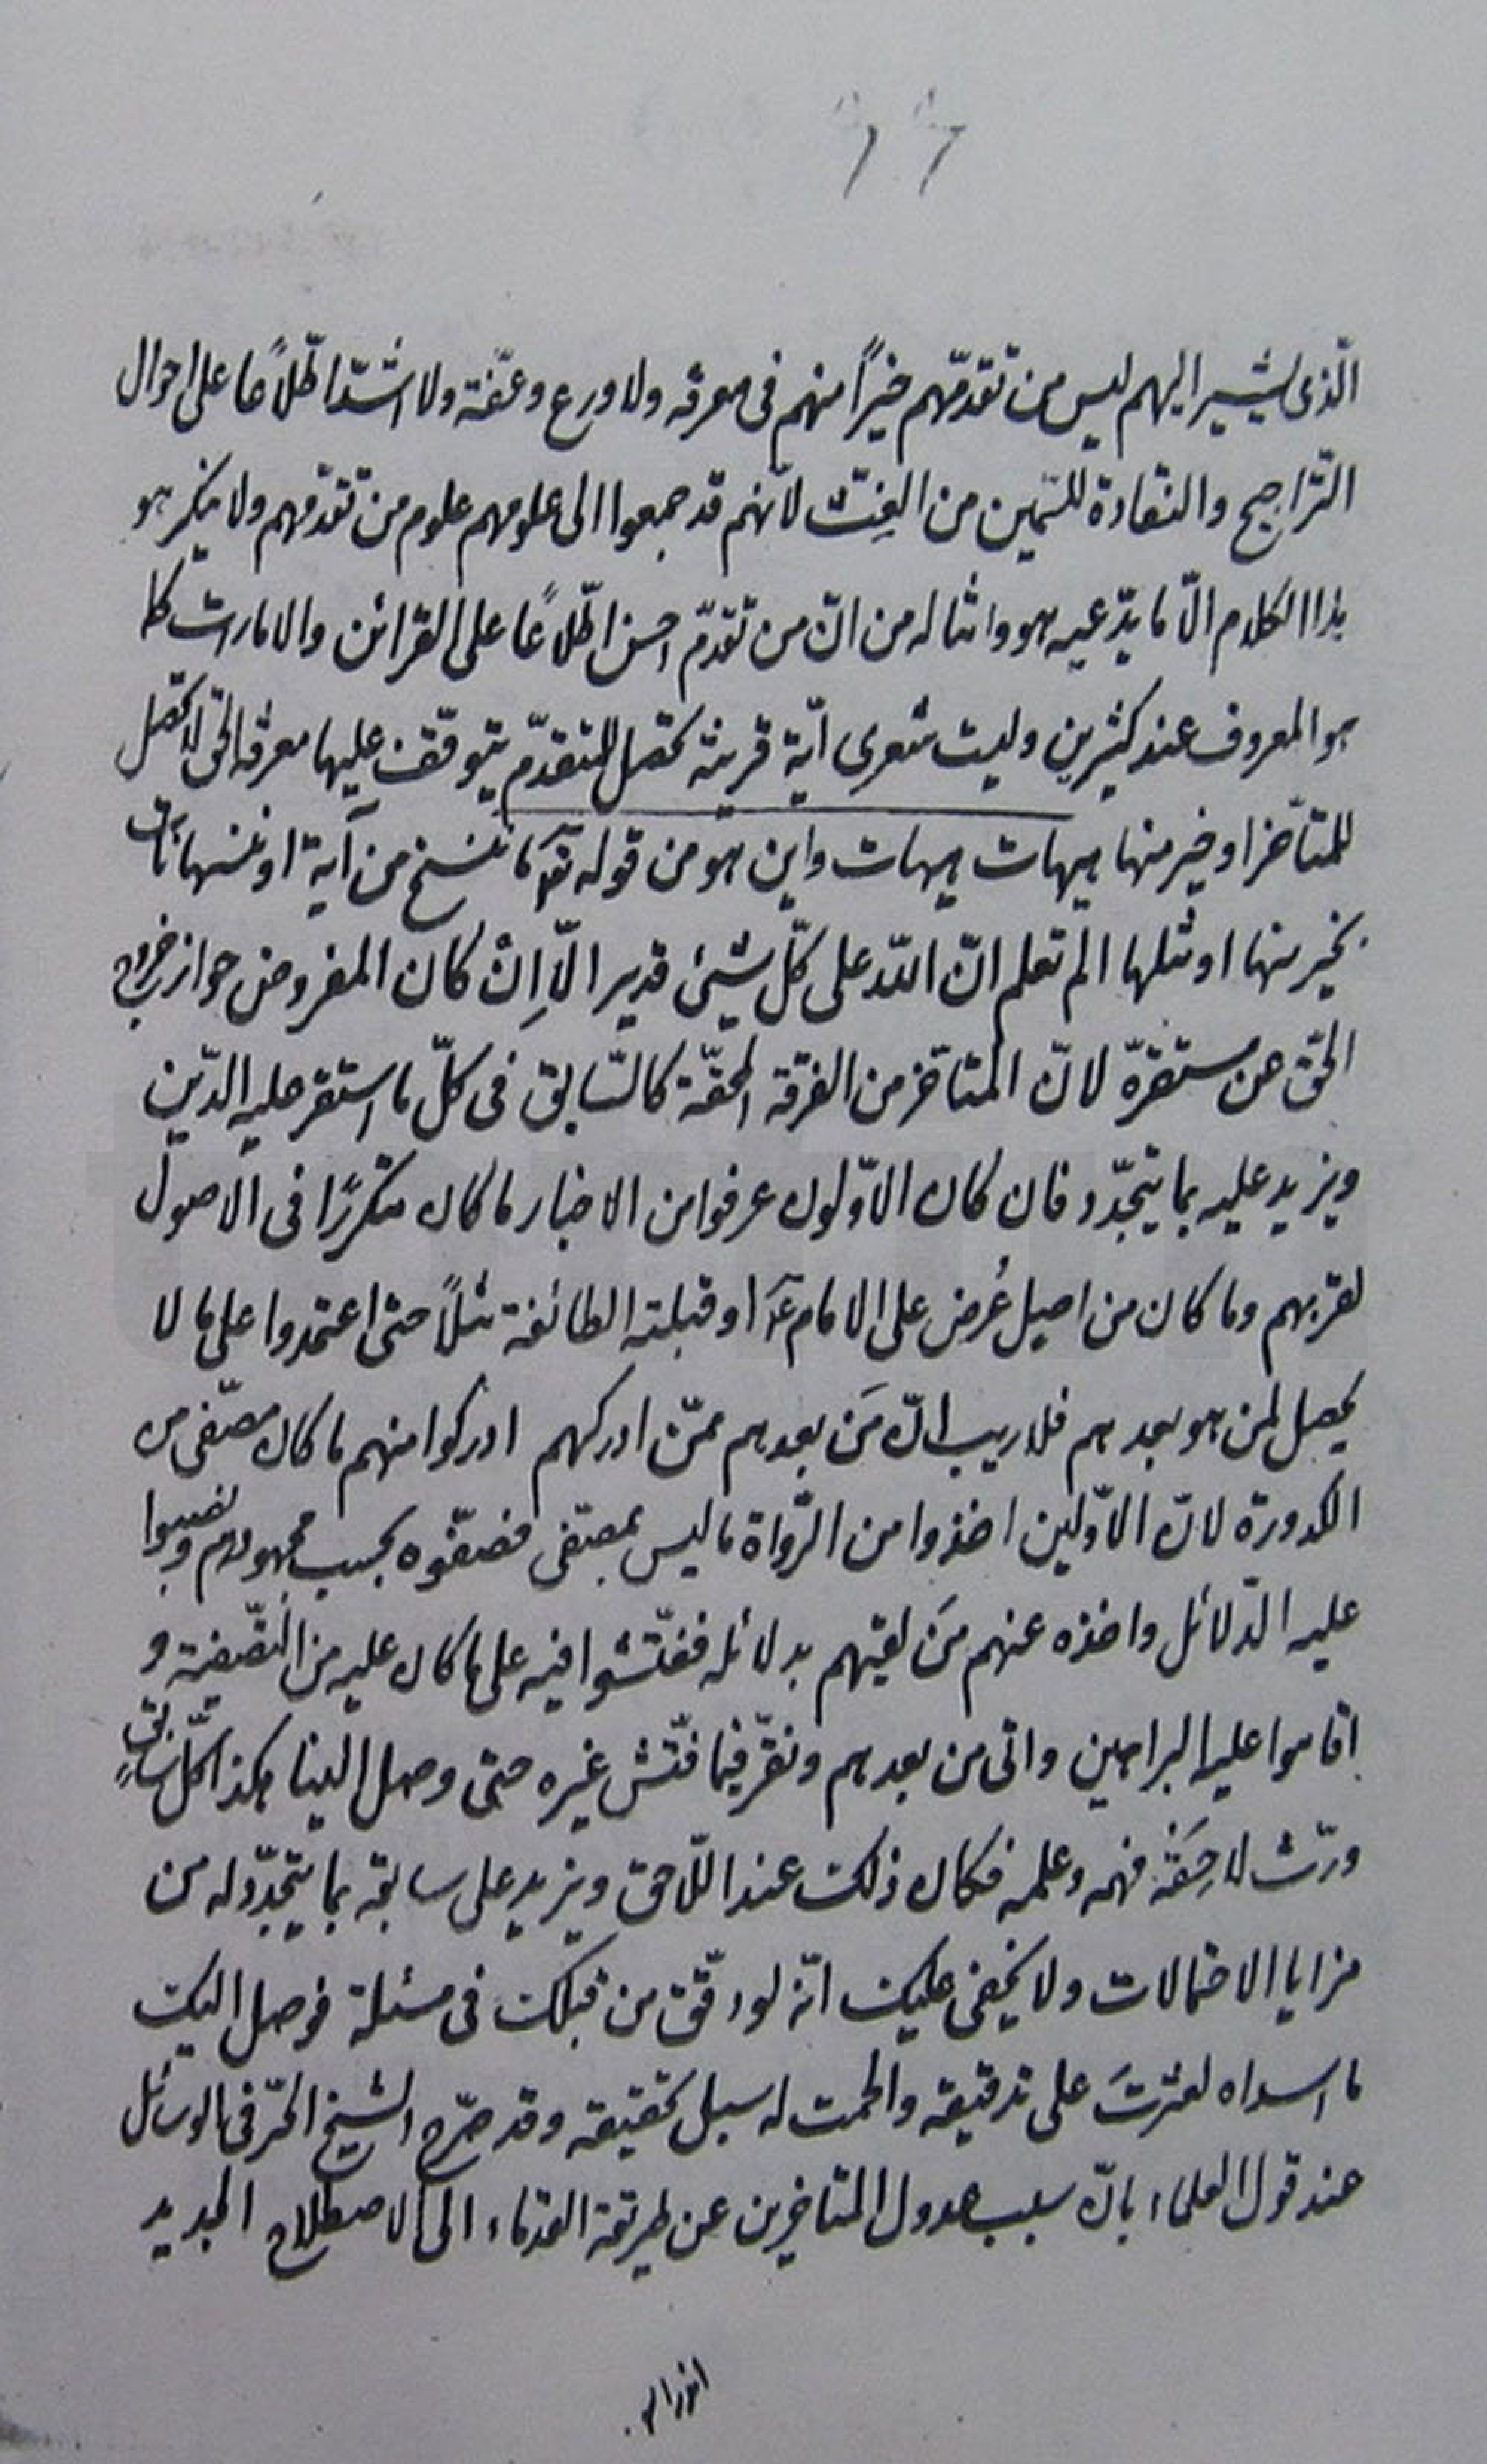 الّذى يشير اليهم ليس من تقدّمهم خيراً منهم فى معرفه ولا ورع وعفّة ولا اشدّ اطّلاعًا على احوال
التّراجيح والنقادة للسّمين من الغثّ لانّهم قد جمعوا الى علومهم علوم من تقدّمهم ولا ينكر هو
هذا الكلام الّا ما يدّعيه هو وامثاله من انّ من تقدّم احسن اطّلاعًا على القرائن والامارات كما
هو المعروف عند كثيرين وليت شعرى ايّة قرينة تحصل للمتقدّم يتوقّف عليها معرفة الحق لا تحصل
للمتأخّر او خير منها هيهات هيهات واين هو من قوله تع ما ننسخ من آية او ننسها نأت
بخير منها او مثلها الم تعلم انّ الله على كلّ شيئ قدير الّا اِنْ كان المفروض جواز خروج
الحقّ عن مستقرّه لانّ المتاخّر من الفرقة المحقّة كالسّابق فى كلّ ما استقر عليه الدّين
ويزيد عليه بما يتجدّد فان كان الاوّلون عرفوا من الاخبار ما كان متكررًا فى الاصول
لقربهم وما كان من اصيل عُرض على الامام ع او قبلته الطائفة مثلاً حتى اعتمدوا على ما لا
يحصل لمن هو بعدهم فلا ريب انّ مَن بعدهم ممّن ادركهم ادركوا منهم ما كان مصفّى من
الكدورة لانّ الاوّلين اخذوا من الرّواة ما ليس بمصفّى فصفّوه بحسب مجهودهم ونصبوا
عليه الدّلائل واخذه عنهم مَن لقيهم بدلائله ففتّشوا فيه على ما كان عليه من التّصفية و
اقاموا عليه البراهين واتى من بعدهم ونقّر فيما فتّش غيره حتى وصل الينا هكذا كلّ سابقٍ
ورّث لاحِقَه فهمه وعلمه فكان ذلك عند اللّاحق ويزيد على سابقه بما يتجدّد له من
مزايا الاحتمالات ولا يخفى عليك انّه لو دقّق من قبلك فى مسئلة فوصل اليك
ما اسداه لعثرتَ على تدقيقه والحمت له سبل تحقيقه وقد صرّح الشيخ الحرّ فى الوسائل
عند قول العلماء بانّ سبب عدول المتاخرين عن طريقة القدماء الى الاصطلاح الجديد